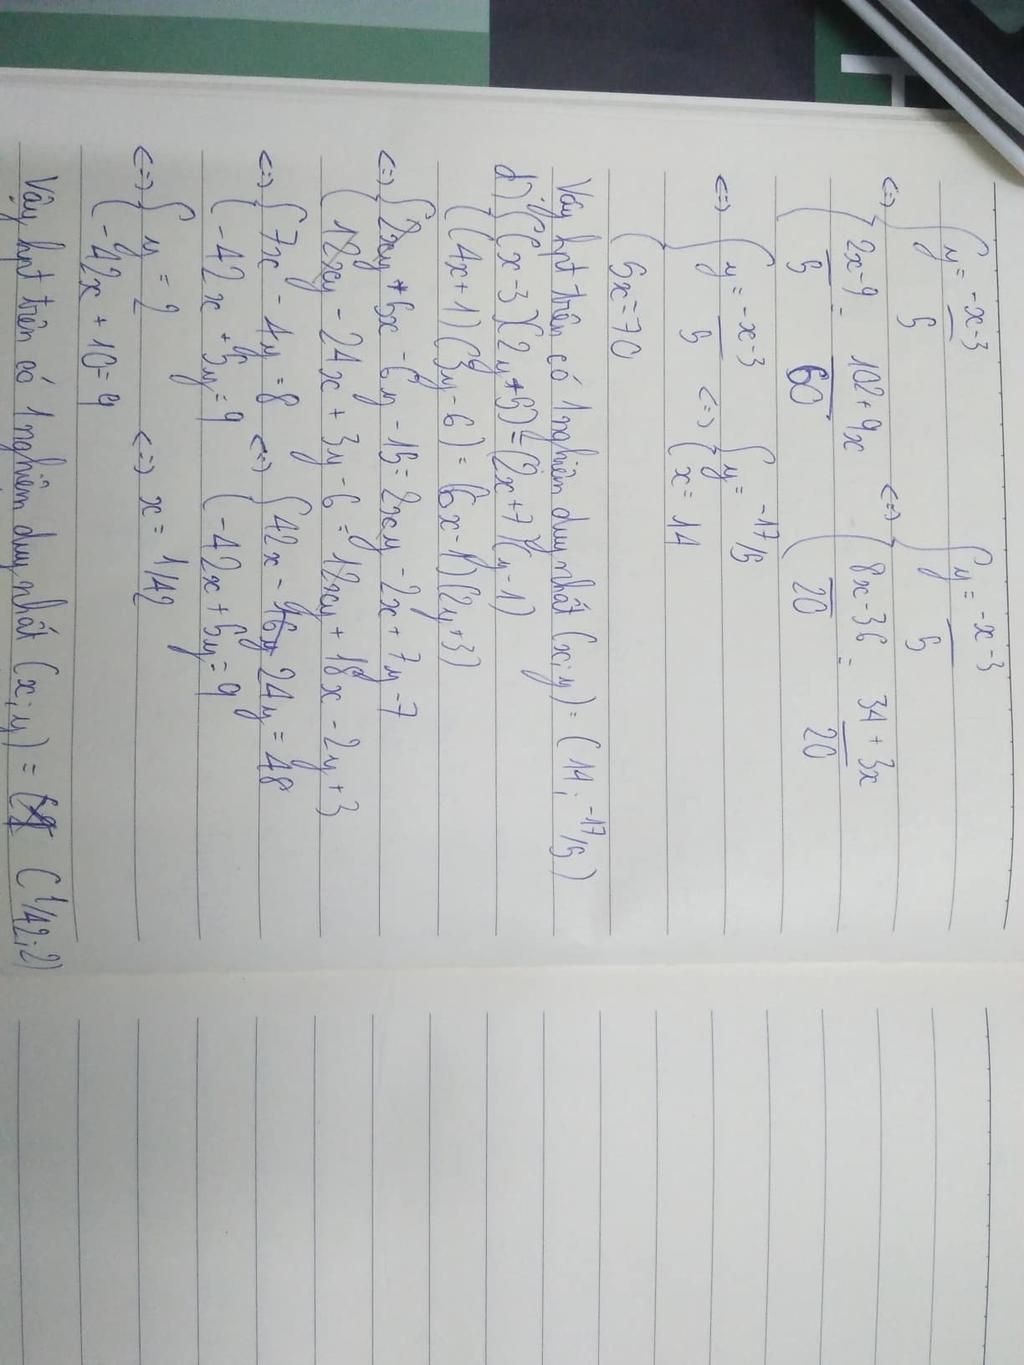 { y = -x-3 / 5
<=> { 2x-9 / 5 = 102+9x / 60 <=> { y = -x-3 / 5
8x-36 / 20 = 34+3x / 20
<=> { y = -x-3 / 5 <=> { y = -17/5
5x = 70 { x = 14
Vậy hpt trên có 1 nghiệm duy nhất (x;y) = (14; -17/5)
d) { (x-3)(2y+5) = (2x+7)(y-1)
{ (4x+1)(3y-6) = (6x-1)(2y+3)
<=> { 2xy + 5x - 6y - 15 = 2xy - 2x + 7y - 7
{ 12xy - 24x + 3y - 6 = 12xy + 18x - 2y + 3
<=> { 7x - 4y = 8 <=> { 42x - 24y = 48
{ -42x + 5y = 9 { -42x + 5y = 9
<=> { y = 2
{ -42x + 10 = 9 <=> x = 1/42
Vậy hpt trên có 1 nghiệm duy nhất (x;y) = (1/42;2)